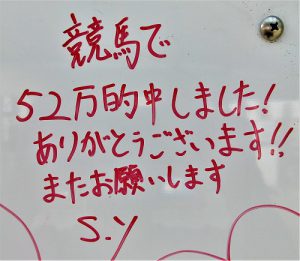 競馬で
52万的中しました!
ありがとうございます!!
またお願いします
S.Y